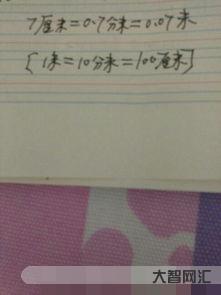 7厘米=0.7分米=0.07米
[1米=10分米=100厘米]
大智网汇